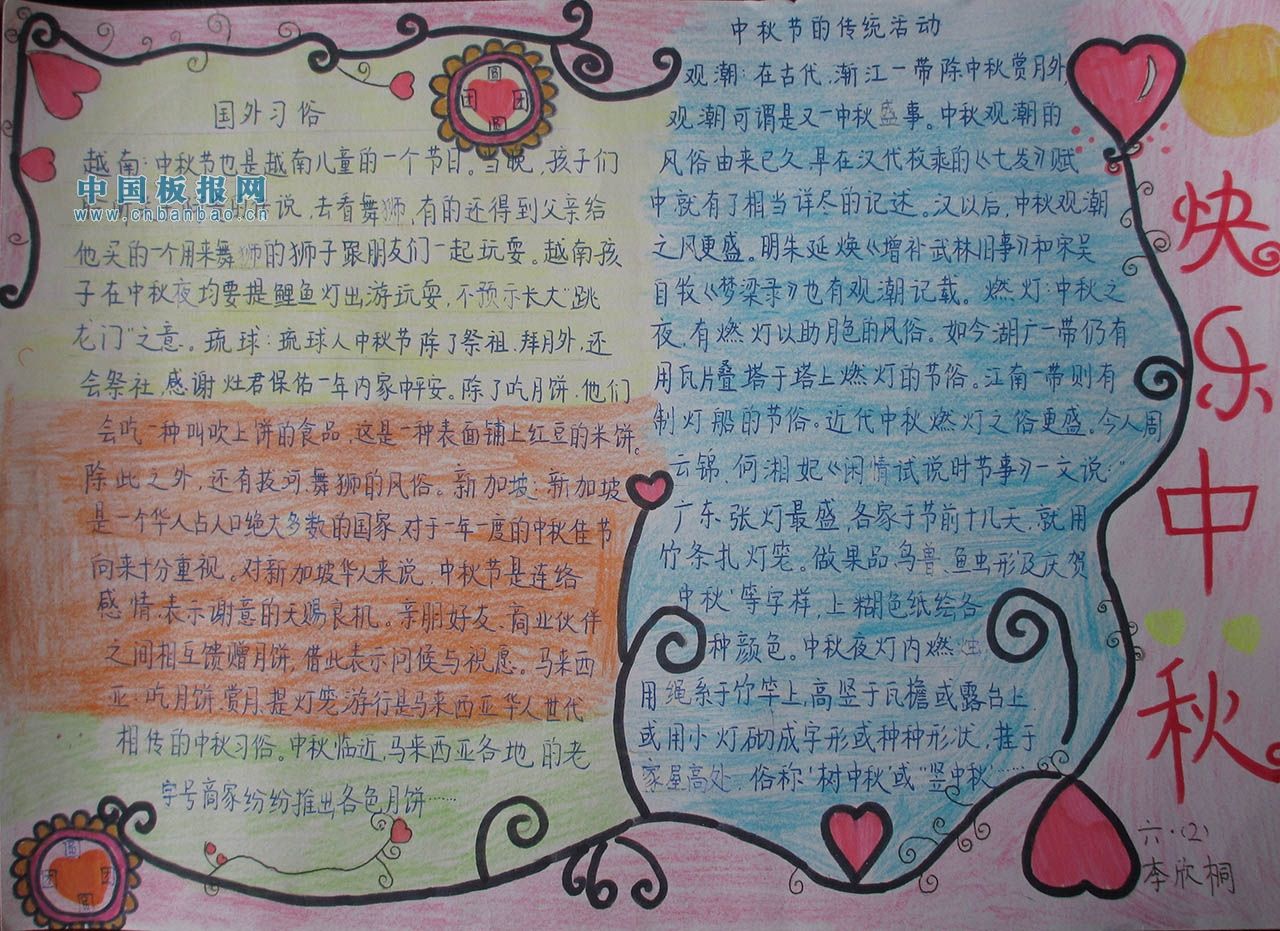 国外习俗
越南:中秋节也是越南儿童的一个节日。当晚,孩子们
说,去看舞狮,有的还得到父亲给
他买的一个用来舞狮的狮子跟朋友们一起玩耍。越南孩
子在中秋夜均要提鲤鱼灯出游玩耍,不预示长大“跳
龙门”之意。琉球:琉球人中秋节除了祭祖、拜月外,还
会祭社,感谢灶君保佑一年内家中平安。除了吃月饼,他们
会吃一种叫吹上饼的食品,这是一种表面铺上红豆的米饼。
除此之外,还有拔河、舞狮的风俗。新加坡:新加坡
是一个华人占人口绝大多数的国家,对于一年一度的中秋佳节
向来十分重视。对新加坡华人来说,中秋节是连络
感情、表示谢意的天赐良机。亲朋好友、商业伙伴
之间相互馈赠月饼,借此表示问候与祝愿。马来西
亚:吃月饼、赏月、提灯笼游行是马来西亚华人世代
相传的中秋习俗。中秋临近,马来西亚各地的老
字号商家纷纷推出各色月饼……
中国板报网
www.cnbanbao.cn
圆
团 团
圆
中秋节的传统活动
观潮:在古代,浙江一带除中秋赏月外
观潮可谓是又一中秋盛事。中秋观潮的
风俗由来已久,早在汉代枚乘的《七发》赋
中就有了相当详尽的记述。汉以后,中秋观潮
之风更盛。明朱延焕《增补武林旧事》和宋吴
自牧《梦梁录》也有观潮记载。燃灯:中秋之
夜,有燃灯以助月色的风俗。如今湖广一带仍有
用瓦片叠塔于塔上燃灯的节俗。江南一带则有
制灯船的节俗。近代中秋燃灯之俗更盛。今人周
云锦、何湘妃《闲情试说时节事》一文说:“
广东张灯最盛,各家于节前十几天,就用
竹条扎灯笼。做果品、鸟兽、鱼虫形及庆贺
中秋’等字样,上糊色纸绘各
种颜色。中秋夜灯内燃烛
用绳系于竹竿上,高竖于瓦檐或露台上
或用小灯砌成字形或种种形状,挂于
家屋高处,俗称‘树中秋’或“竖中秋’……
快乐中秋
圆
团 团
圆
六·(2)
李欣桐